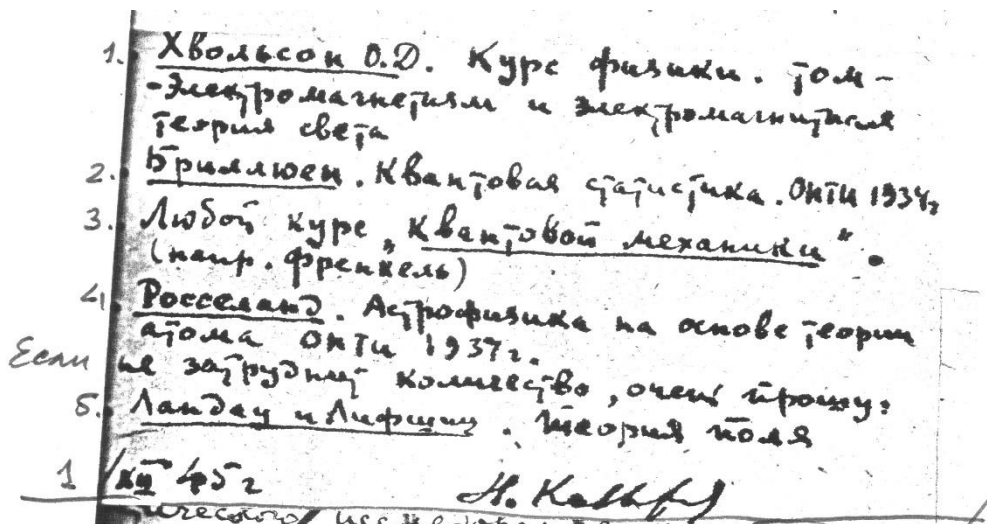 1. Хвольсон О.Д. Курс физики. Том -
- Электромагнетизм и электромагнитная
теория света
2. Бриллюен. Квантовая статистика. ОНТИ 1934г
3. Любой курс „Квантовой механики".
(напр. Френкель)
4. Росселанд. Астрофизика на основе теории
атома ОНТИ 1937г.
Если не затруднит количество, очень прошу:
5. Ландау и Лифшиц. Теория поля
1/XII 45г Н.